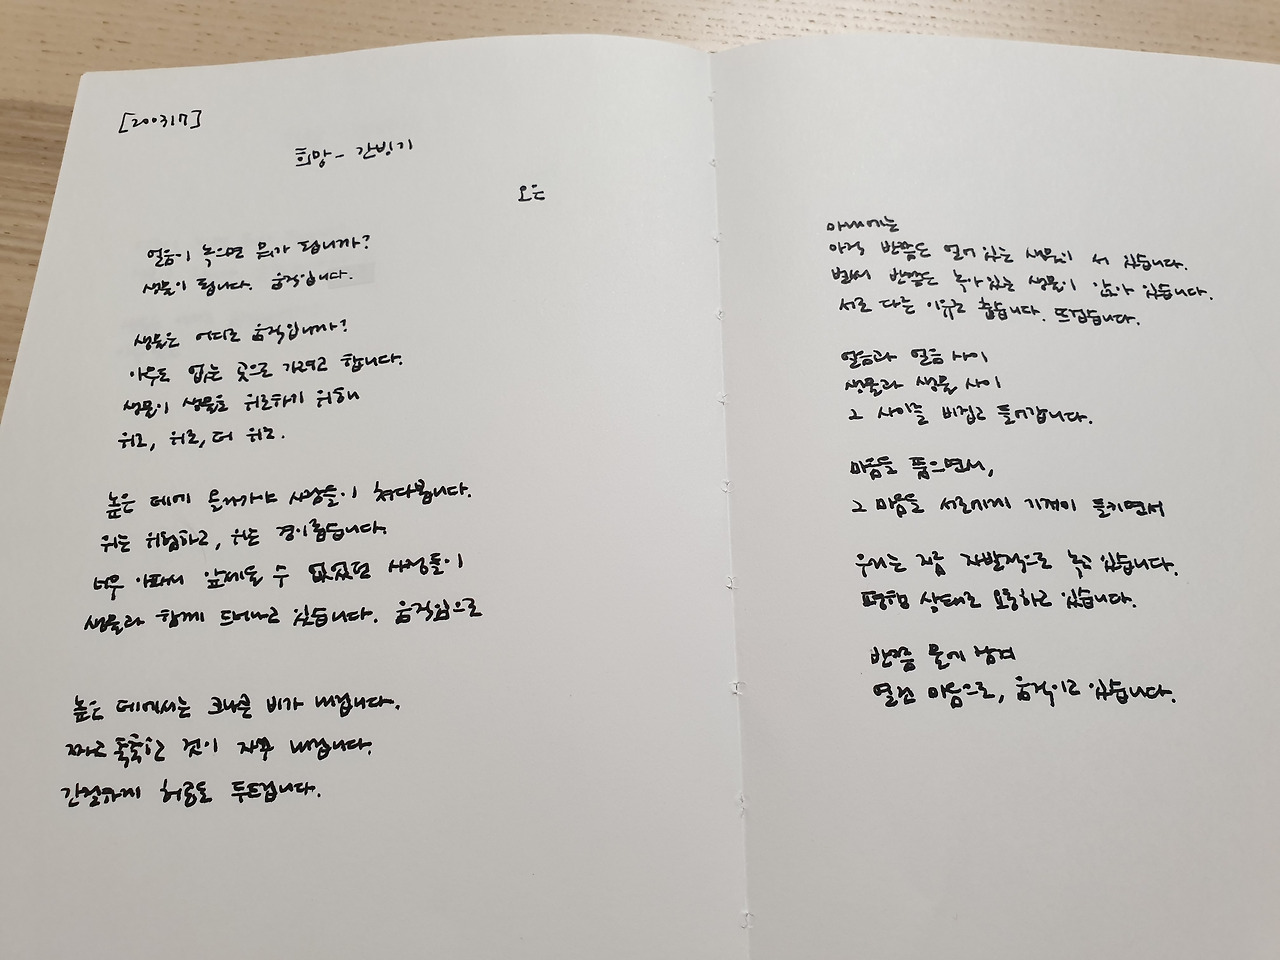 [200317]
희망 - 간빙기
오은
얼음이 녹으면 뭐가 됩니까?
생물이 됩니다. 움직입니다.
생물은 어디로 움직입니까?
아무도 없는 곳으로 가려고 합니다.
생물이 생물을 위로하기 위해
위로, 위로, 더 위로.
높은 데에 올라가야 사람들이 쳐다봅니다.
위는 위험하고, 위는 경이롭습니다.
너무 아파서 앞에 수 없었던 사람들이
생물과 함께 드러나고 있습니다. 움직임으로
높은 데에서는 크나큰 비가 내립니다.
짜고 톡톡한 것이 자꾸 내립니다.
간절하게 허공도 두드립니다.
아래에는
아직 반쯤은 얼어 있는 생물이 서 있습니다.
벌써 반쯤은 녹아 있는 생물이 앉아 있습니다.
서로 다른 이유로 춥습니다. 뜨겁습니다.
얼음과 얼음 사이
생물과 생물 사이
그 사이를 비집고 들어갑니다.
마음을 품으면서,
그 마음을 서로에게 기꺼이 들키면서
우리는 지금 자발적으로 녹고 있습니다.
평형 상태로 요동하고 있습니다.
반쯤 물에 잠겨
열린 마음으로, 움직이고 있습니다.